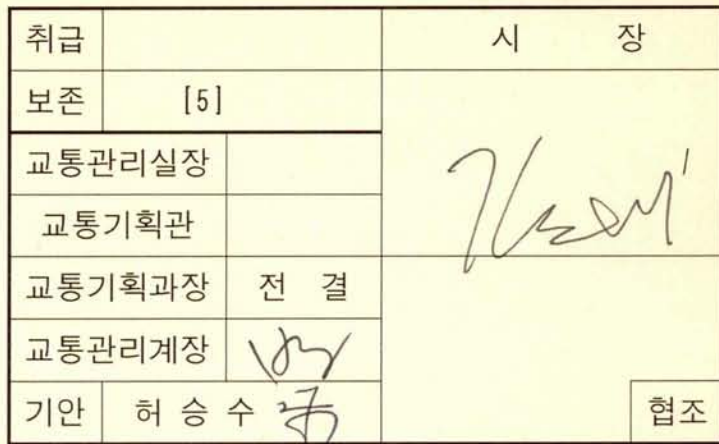 취급
시 장
보존 [5]
교통관리실장
교통기획관
교통기획과장 전 결
교통관리계장
기안 허 승 수
협조